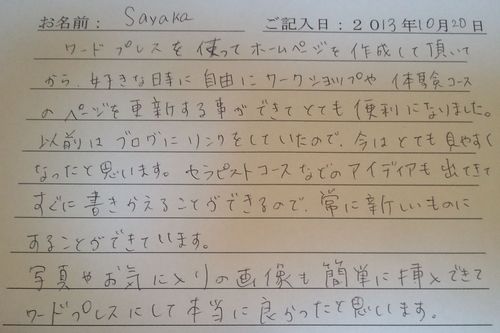 お名前： Sayaka ご記入日：2013年10月20日
ワードプレスを使ってホームページを作成して頂いて
から、好きな時に自由にワークショップや体験コース
のページを更新する事ができてとても便利になりました。
以前はブログにリンクをしていたので、今はとても見やすく
なったと思います。セラピストコースなどのアイディアも出てきて
すぐに書きかえることができるので、常に新しいものに
することができています。
写真やお気に入りの画像も簡単に挿入できて
ワードプレスにして本当に良かったと思います。